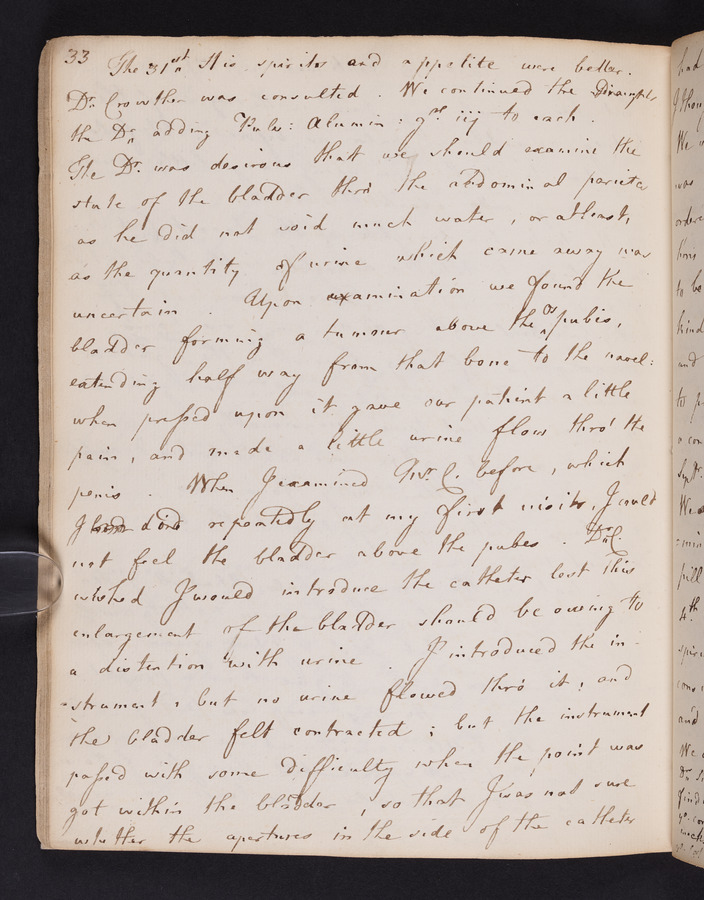 33 The 31st His spirits and appetite were better.
Dr. Crowther was consulted. We continued the Draughts
the Dr. adding Pulv: Alumin: grs. iij to each.
The Dr. was desirous that we should examine the
state of the bladder thro' the abdominal parietes
as he did not void much water, or at least,
as the quantity of urine which came away was
uncertain. Upon examination we found the
bladder forming a tumour above the os pubis,
extending half way from that bone to the navel:
when pressed upon it gave our patient a little
pain, and made a little urine flow thro' the
penis. When I examined Mr. C. before, which
I did repeatedly at my first visits, I could
not feel the bladder above the pubes. Dr. C.
wished I would introduce the catheter lest this
enlargement of the bladder should be owing to
a distention with urine. I introduced the in-
-strument, but no urine flowed thro' it; and
the bladder felt contracted; but the instrument
passed with some difficulty when the point was
got within the bladder, so that I was not sure
whether the apertures in the side of the catheter
had
I thou
We
was
order
to be
kind
and
to p
a con
Sepr.
We
pill
4th
spiri
and
We